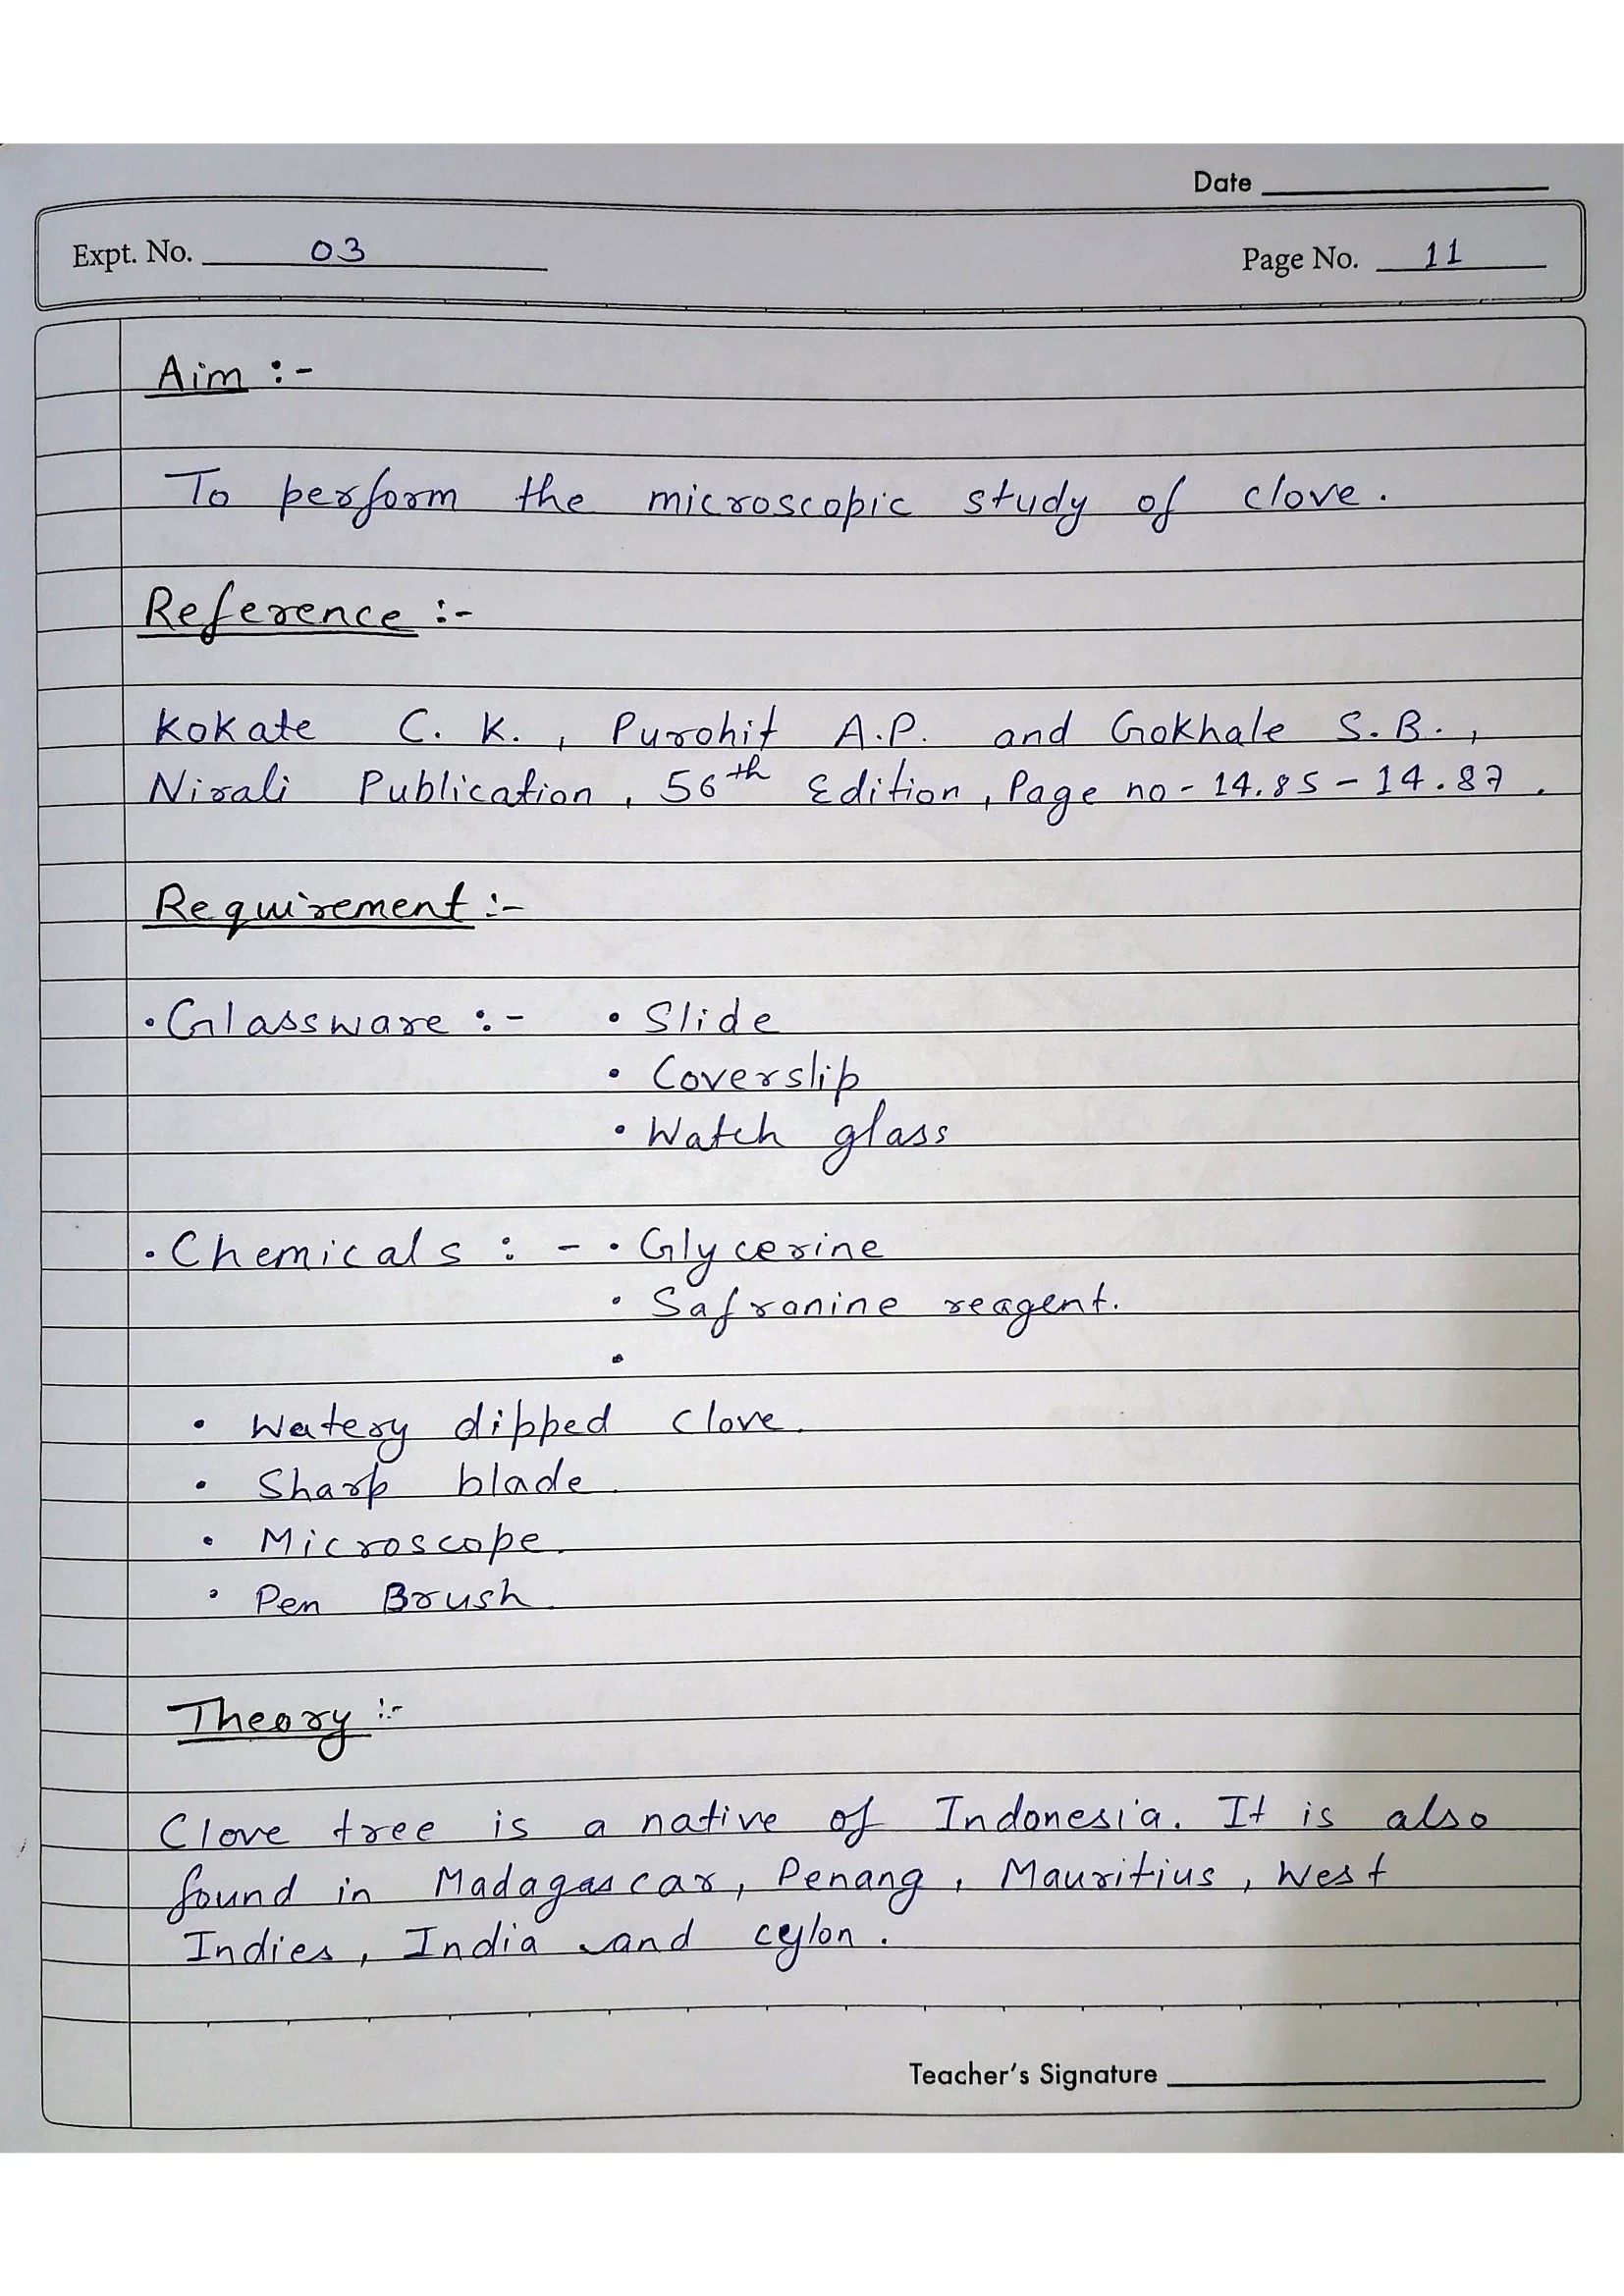 Date
Expt. No. 03
Page No. 11
Aim :-
To perform the microscopic study of clove.
Reference :-
Kokate C. K., Purohit A.P. and Gokhale S.B.,
Nirali Publication, 56th Edition, Page no - 14.85 - 14.87.
Requirement :-
• Glassware :- • Slide
• Coverslip
• Watch glass
• Chemicals : - • Glycerine
• Safranine reagent.
•
• Watery dipped clove.
• Sharp blade.
• Microscope.
• Pen Brush.
Theory :-
Clove tree is a native of Indonesia. It is also
found in Madagascar, Penang, Mauritius, West
Indies, India and cylon.
Teacher's Signature